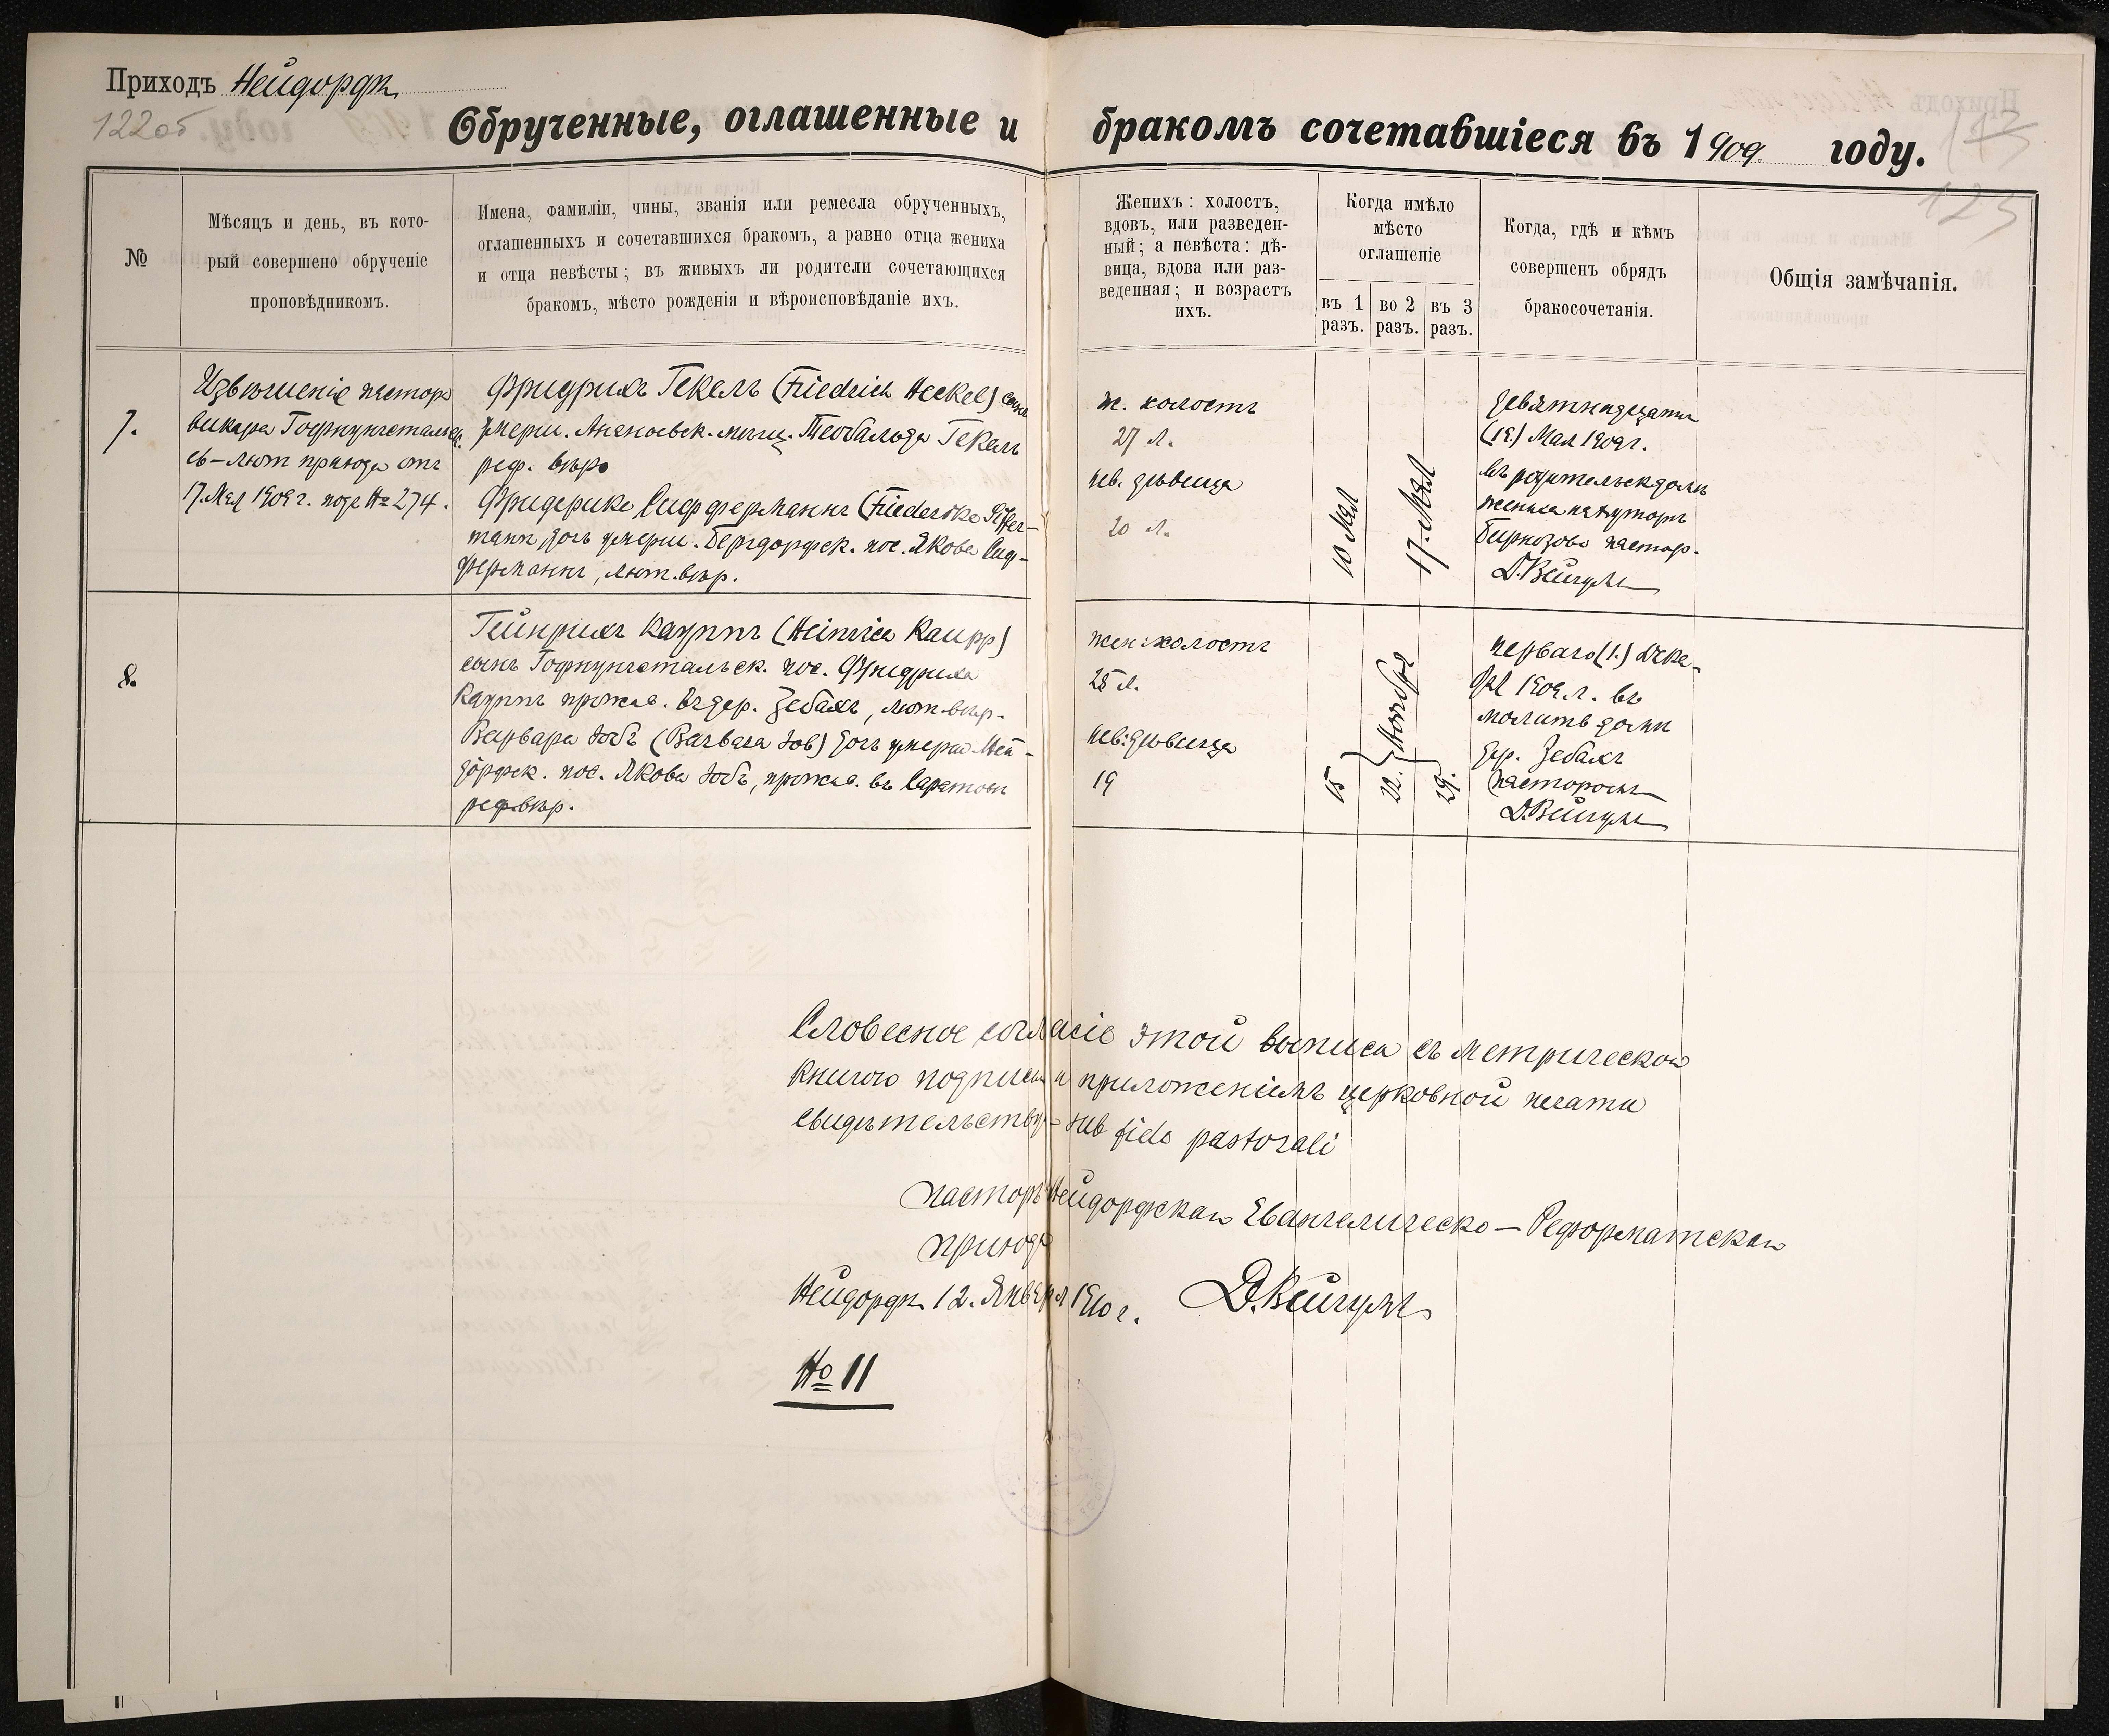 Приходъ Нейдорфъ
122об
123
Обрученные, оглашенные и бракомъ сочетавшіеся въ 1909 году.
№
Мѣсяцъ и день, въ кото-
рый совершено обрученіе
проповѣдникомъ.
Имена, фамиліи, чины, званія или ремесла обрученныхъ,
оглашенныхъ и сочетавшихся бракомъ, а равно отца жениха
и отца невѣсты; въ живыхъ ли родители сочетающихся
бракомъ, мѣсто рожденія и вѣроисповѣданіе ихъ.
Женихъ: холостъ,
вдовъ, или разведен-
ный; а невѣста: дѣ-
вица, вдова или раз-
веденная; и возрастъ
ихъ.
Когда имѣло
мѣсто
оглашеніе
въ 1
разъ.
во 2
разъ.
въ 3
разъ.
Когда, гдѣ и кѣмъ
совершенъ обрядъ
бракосочетанія.
Общія замѣчанія.
7.
Извѣщеніе пастора
викара Гофнунгстальск.
ев-лют прихода отъ
17. Мая 1909 г. подъ № 274.
Фридрихъ Гекель (Friedrich Heckel) сынъ
умерш. Ананьевск. мѣщ. Теобальда Гекель
реф. вѣр.
Фридерике Сифферманнъ (Friederike Siffer-
mann дочь умерш. Бергдорфск. пос. Якова Сиф-
ферманнъ, лют. вѣр.
ж. холостъ
27 л.
нев. дѣвица
20 л.
10 Мая
17. Мая
девятнадцатаго
(19.) Мая 1909 г.
въ родительск домѣ
жениха на хуторѣ
пастор.
Д. Вейгумъ
8.
Гейнрихъ Кауппъ (Heinrich Kaupp)
сынъ Гофнунгстальск. пос. Фридриха
Кауппъ прожив. въ дер. Зебахъ, лют. вѣр.
Варвара Іобъ (Barbara Job) дочь умерш Ней-
дорфск. пос. Якова Іобъ, прожив. въ Саратовѣ
реф вѣр.
жен: холостъ
25 л.
нев: дѣвица
19
15
22.
29.
Ноября
перваго (1.) Дека-
бря 1909 г. въ
молитв домѣ
дер. Зебахъ
пасторомъ
Д. Вейгумъ
Словесное согласіе этой выписи съ метрическою
книгою подписью и приложеніемъ церковной печати
свидѣтельствую sub fide pastorali
пасторъ Нейдорфскаго Евангелическо-Реформатскаго
прихода
Нейдорфъ 12. Января 1910 г. Д. Вейгумъ
№ 11